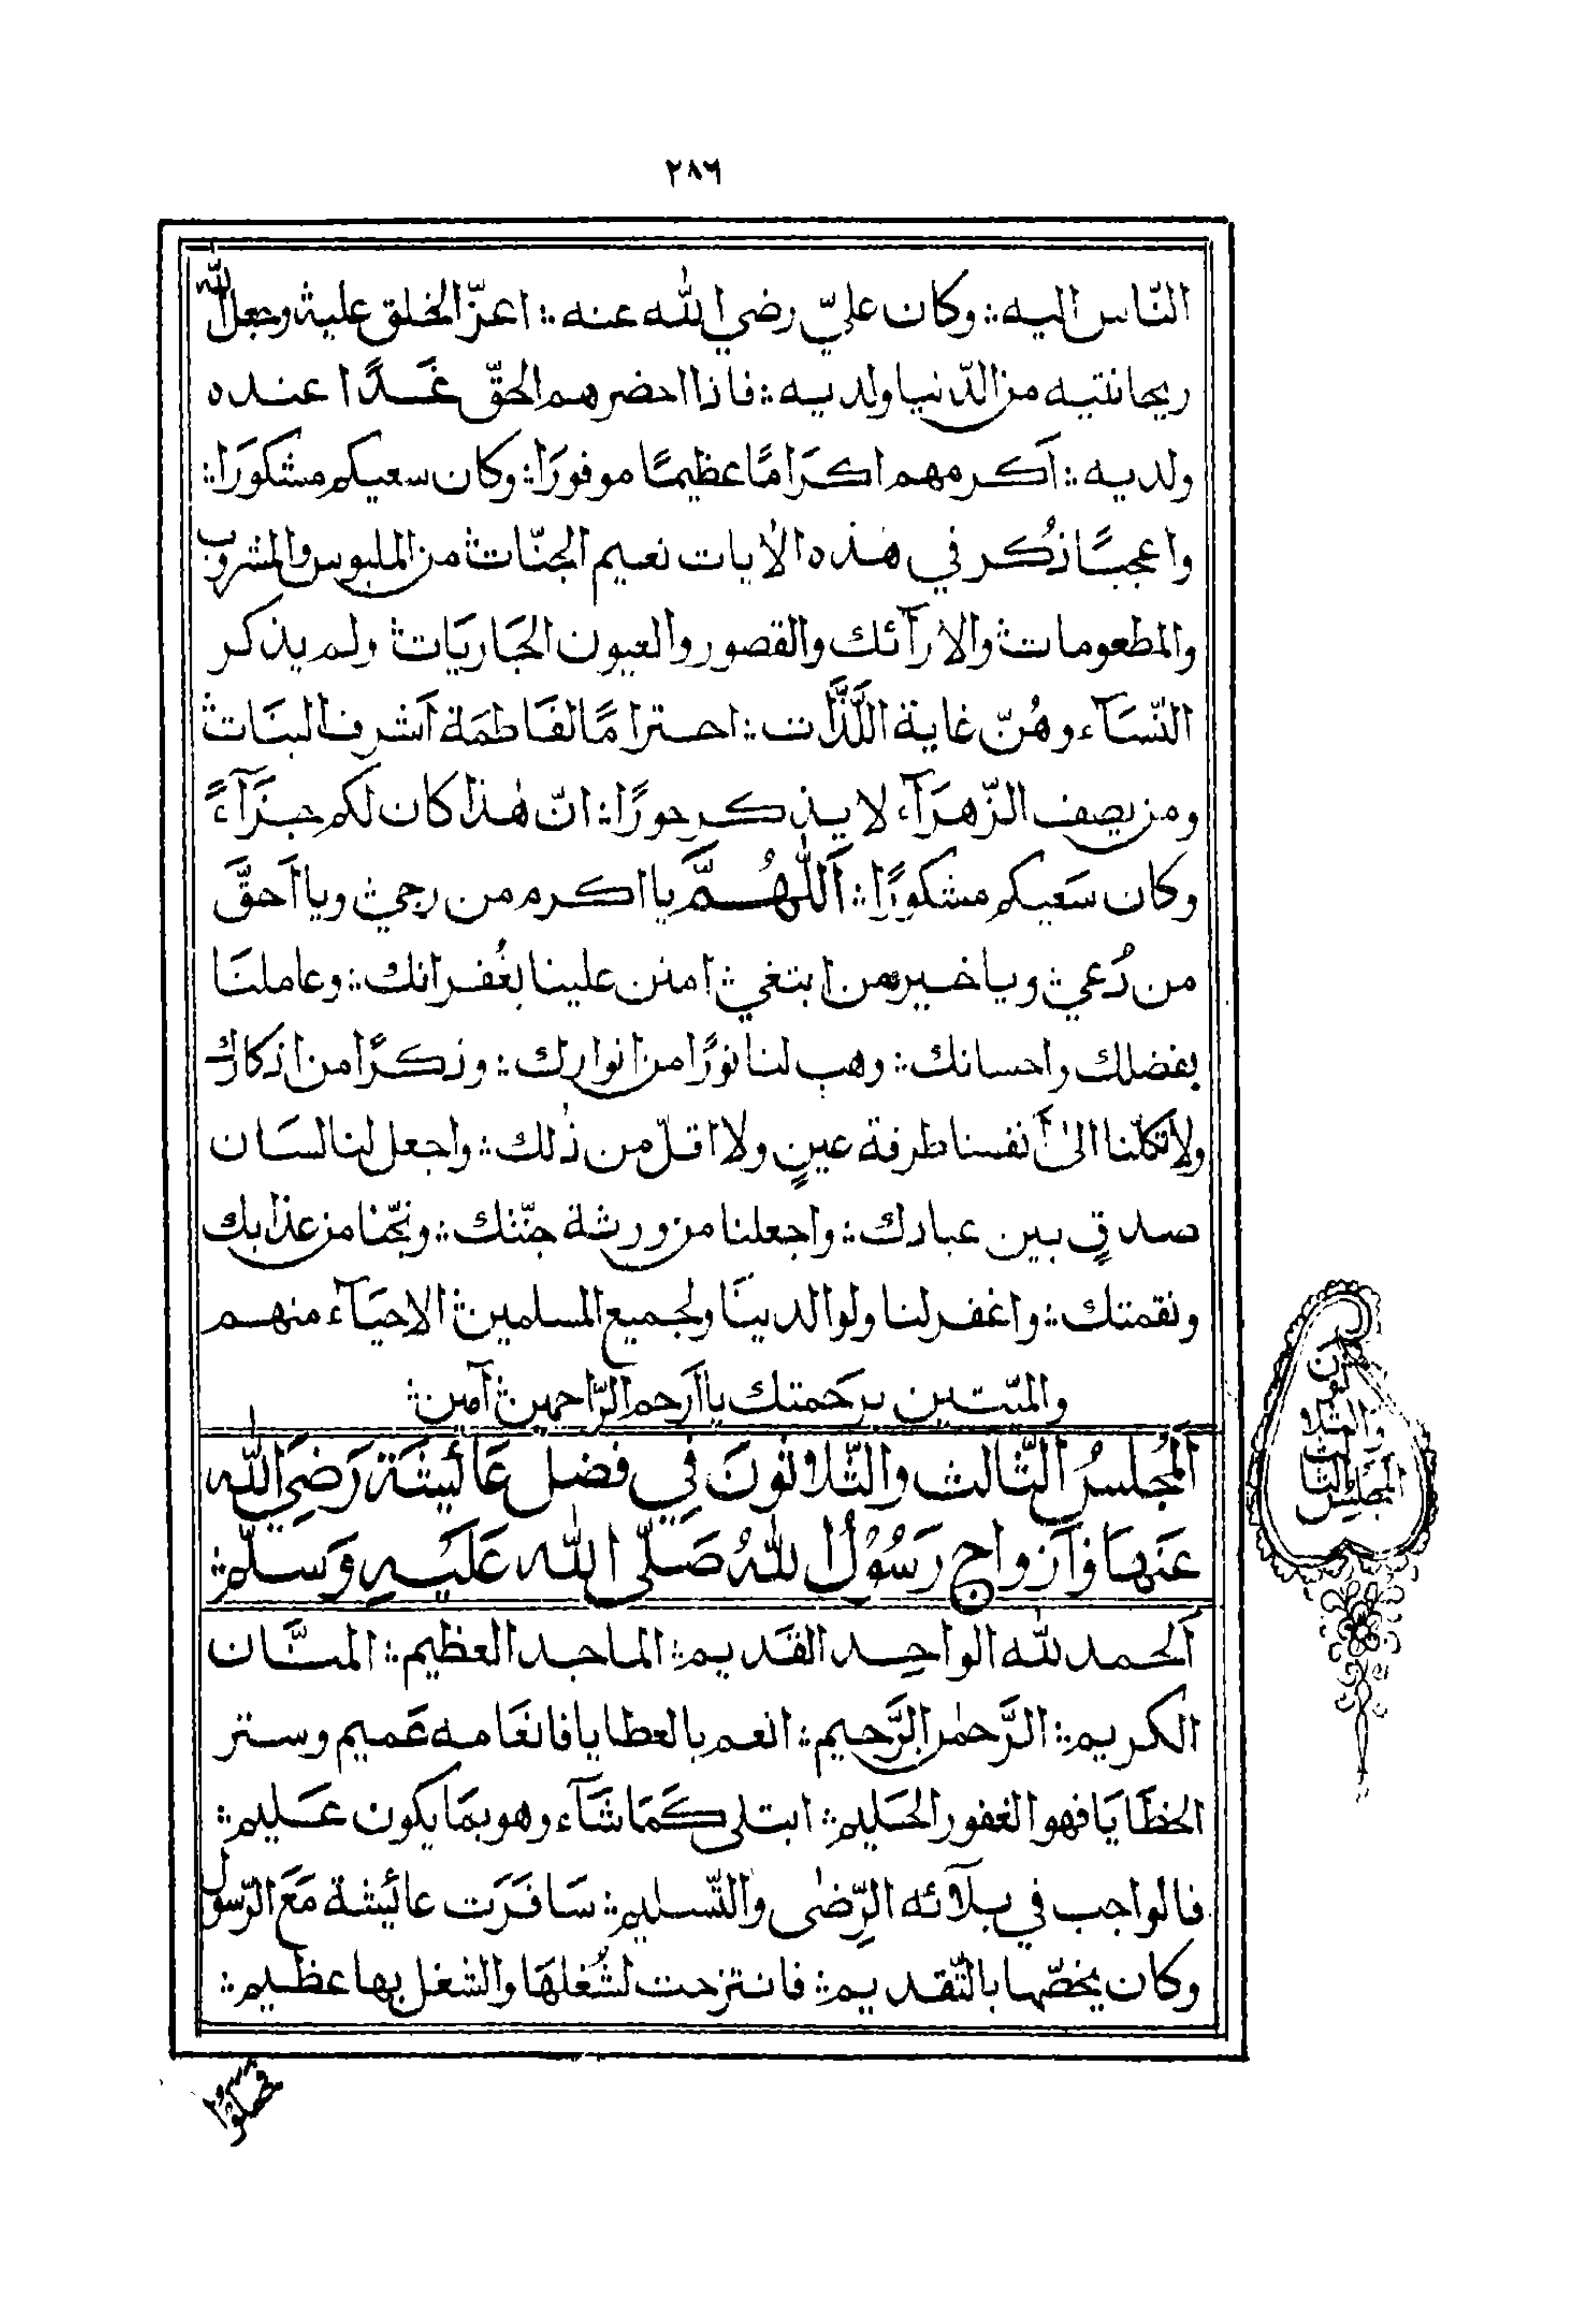 ٢٨٦
النّاس اليه؞ وكان عليّ رضي الله عنه؞ اعزّ الخلق عليه؞ وجعل الله
ريحانتيه من الدّنيا ولديه؞ فاذا احضرهم الحقّ غَدًا عنده
ولديه؞ اَكرمهم اكرَامًا عظيمًا موفورَا؞ وكان سعيكم مشكورَا؞
واعجبًا ذُكر في هٰذه الاٰيات نعيم الجنّات؞ من الملبوس والمشروب
والمطعومات؞ والارآئك والقصور والعيون الجَاريَات؞ ولم يذكر
النّسَآء وهُنّ غاية اللَّذَّات؞ احترامًا لفَاطمَة اَشرف البنَات؞
ومن يصف الزّهرَآء لا يذكر حورًا؞ انّ هٰذا كان لكم جزَآءً
وكان سَعيكم مشكورًا؞ اَللّٰهُمَّ يا اكرم من رجي؞ ويا اَحقَّ
من دُعي؞ ويا خير من ابتغي؞ امنن علينا بغُفرانك؞ وعاملنَا
بفضلك واحسانك؞ وهب لنا نورًا من انوارك؞ وذكرًا من اذكارك
ولا تكلنا الىٰ اَنفسنا طرفة عينٍ ولا اقلّ من ذٰلك؞ واجعل لنا لسَان
صدقٍ بين عبادك؞ واجعلنا من ورثة جنّتك؞ ونجّنا من عذابك
ونقمتك؞ واغفر لنا ولوالدينَا ولجميع المسلمين؞ الاحيَآء منهم
والميّتين برَحمتك يا اَرحم الرّاحمين؞ آمين؞
اَلمَجلسُ الثّالث والثّلاثونَ فِي فضل عَائيشَة رَضِيَ الله
عَنهَا وَاَزواج رَسُوْل اللهُ صَلّى الله عَلَيهِ وَسَلّم؞
المجلس الثالث والثلاثون
اَلحمد لله الواحِد القَديم؞ الماجد العظيم؞ المنَّان
الكريم؞ الرَّحمٰن الرَّحيم؞ انعم بالعطايا فانعَامه عَميم وستر
الخطَايَا فهو الغفور الحَليم؞ ابتلى كَمَا شَآء وهو بمَا يكون عَليم؞
فالواجب في بلآئه الرِّضٰى والتّسليم؞ سَافَرَت عائيشة مَعَ الرّسول
وكان يخصّها بالتّقديم؞ فانتزحت لشُغلهَا والشغل بها عظيم؞